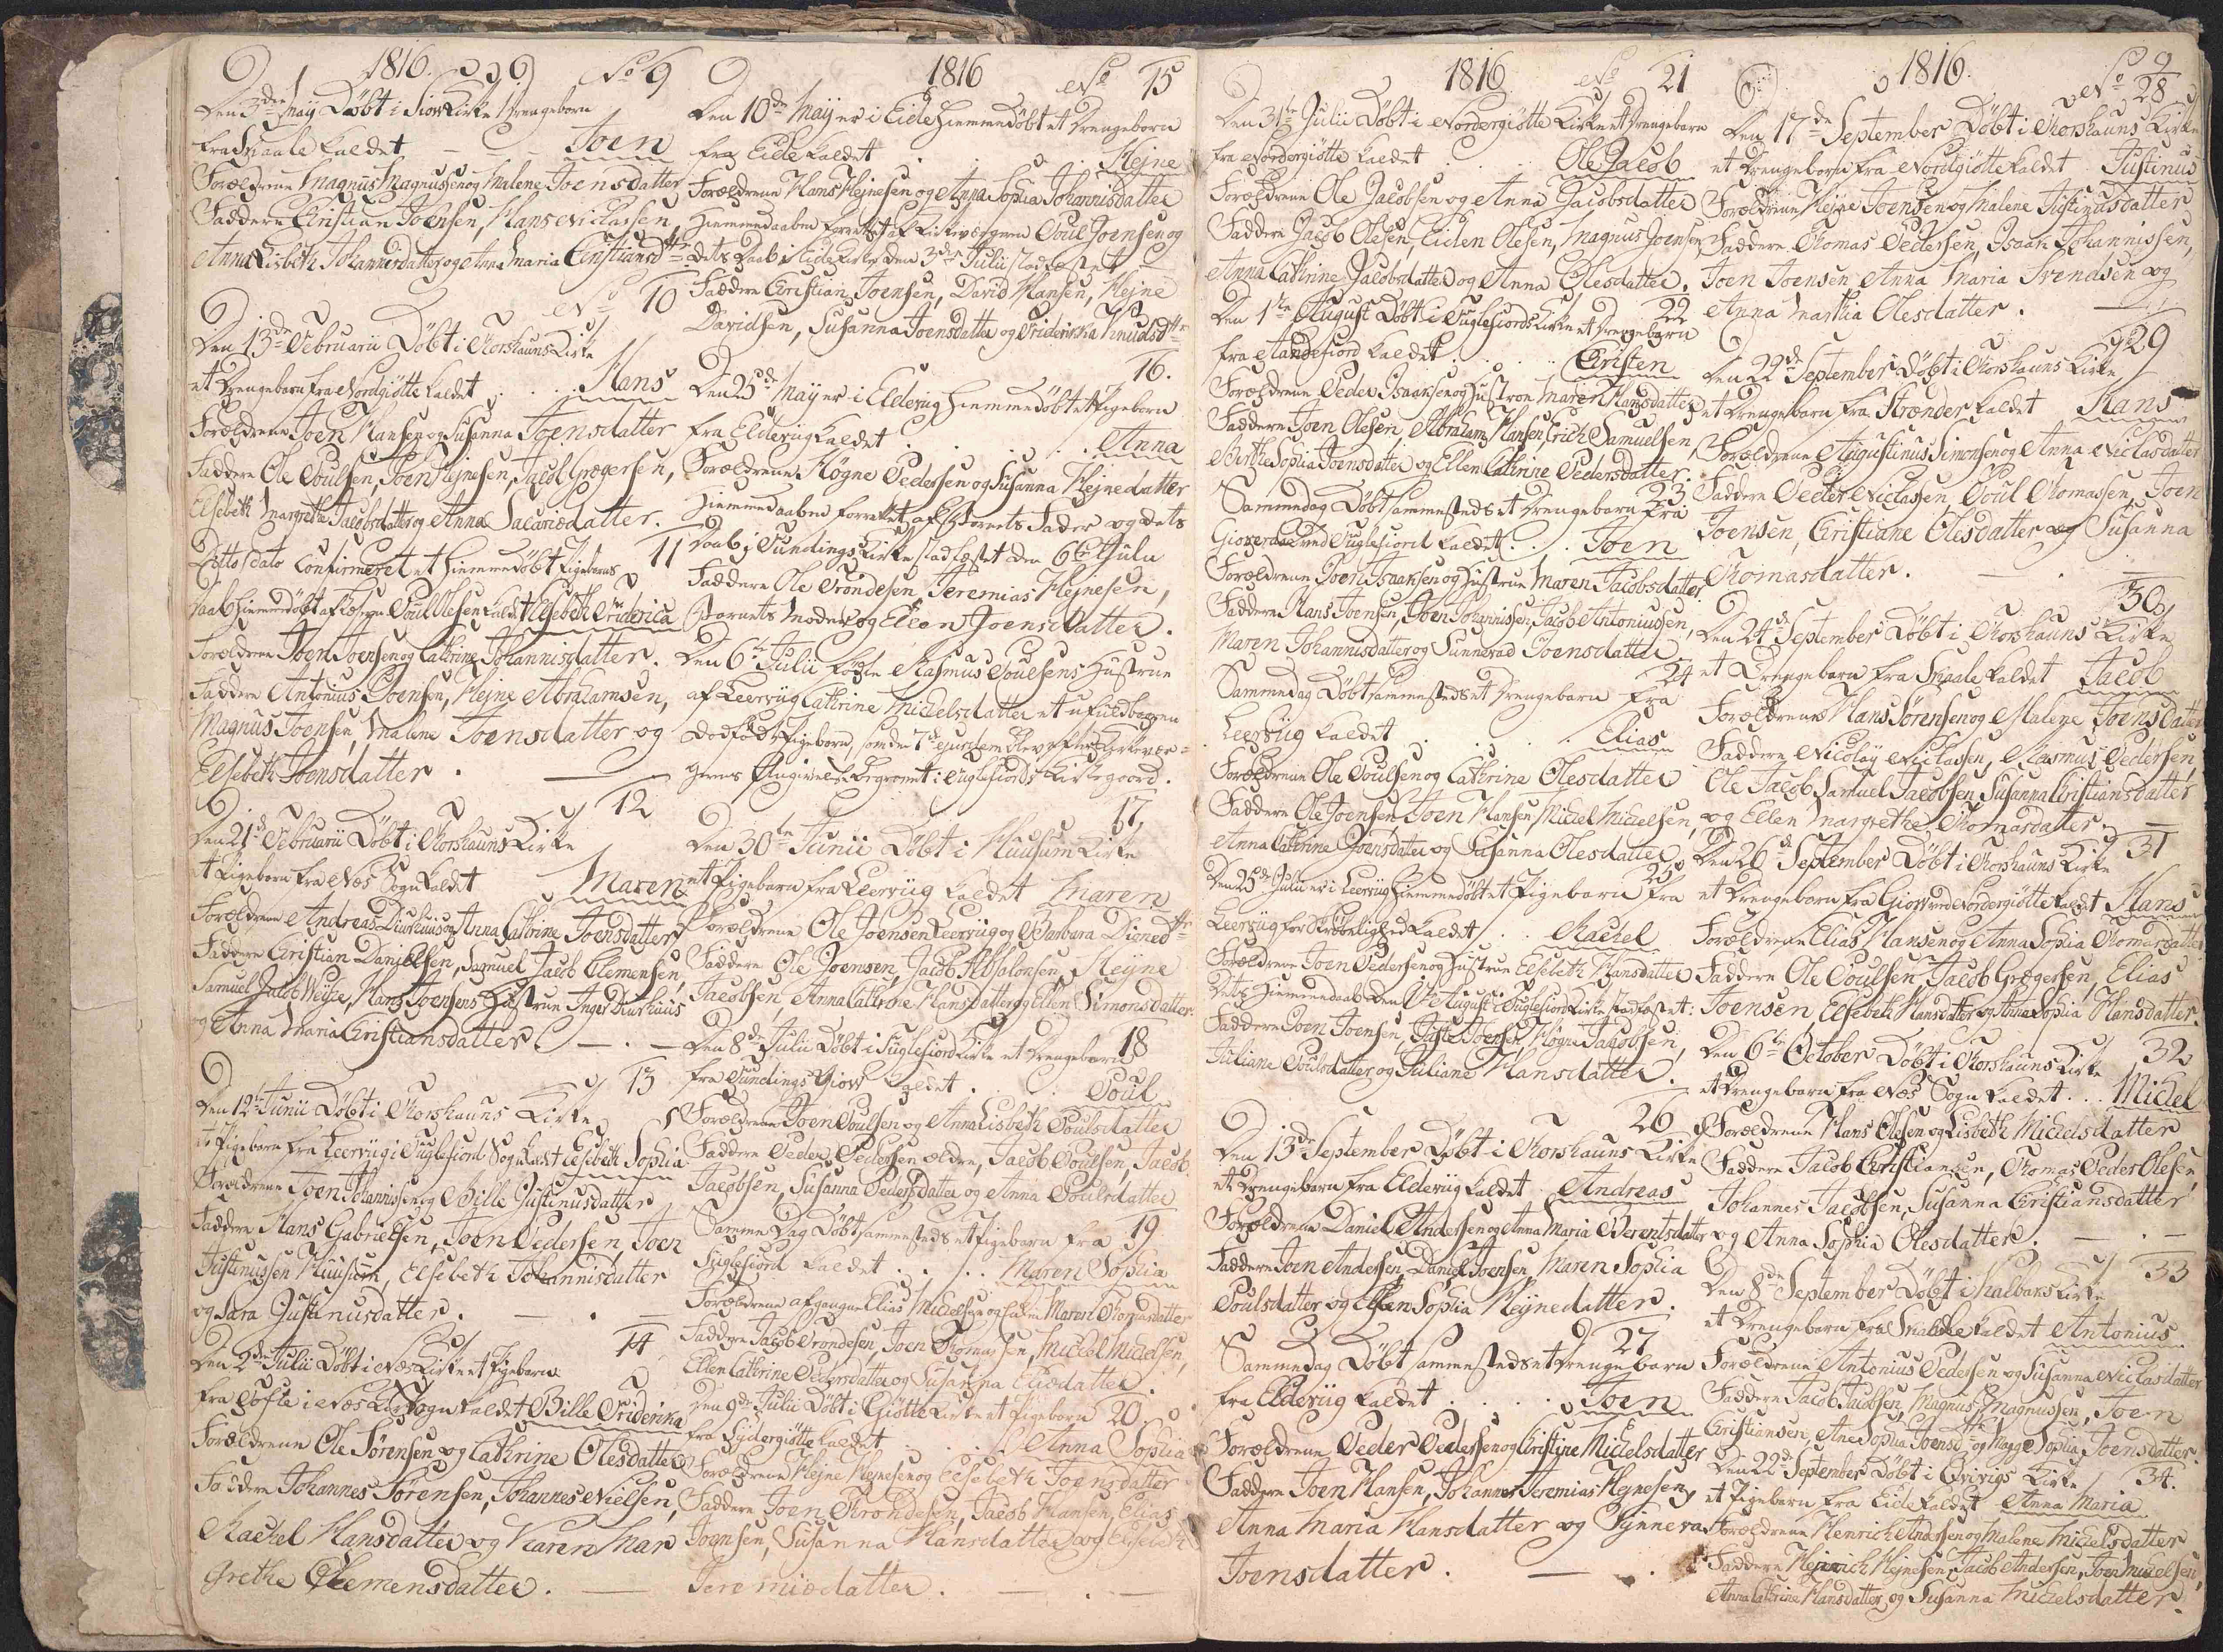 1816. No 9
Den 3die Maij Döbt i Giow Kirke 1 Drengebarn
fra Skaale kaldet Joen
Forældrene Magnus Magnussen og Malene Joensdatter
Faddere Christian Joensen, Hans Niclassen
Anna Lisbeth Johannesdatter og Anna Maria Christiansdtr
No 10
Den 13de Februarii Döbt i Thorshauns Kirke
et Drengebarn fra Nordgiötte kaldet Hans
Forældrene Joen Hansen og Susanna Joensdatter
Faddere Ole Poulsen, Joen Hejnesen, Jacob Grægersen,
Elsebeth Margrethe Jacobsdatter og Anna Sacariædatter.
11
Ditto Dato Confirmeret et hiemmedöbt Pigebarns
Daab hiemmedöbt af Poul Olesen kaldet Elsebeth Friderica
Forældrene Joen Joensen og Cathrine Johannisdatter.
Faddere Antonius Joensen, Hejne Abrahamsen,
Magnus Joensen, Malene Joensdatter og
Elsebeth Joensdatter.
12
Den 21de Februarii Döbt i Thorshauns Kirke
et Pigebarn fra Næs Sogn kaldet Maren
Forældrene Andreas Diurhuus og Anna Cathrine Joensdatter
Faddere Christian Danielsen, Samuel Jacob Clemensen,
Samuel Jacob Weyhe, Hans Joensens Hustrue Inger Diurhuus
og Anna Maria Christiansdatter.
13
Den 12te Junii Döbt i Thorshauns Kirke
et Pigebarn fra Leervüg i Fuglefiord Sogn kaldet Elsebeth Sophia
Forældrene Joen Johannissen og Bille Justinusdatter
Faddere Hans Gabrielsen, Joen Pedersen, Joen
Justinussen Huusum, Elsebeth Johannisdatter
og Sara Justinusdatter.
14
Den 2den Julii Döbt i Næs Kirke et Pigebarn
fra Tofte i Næs Sogn kaldet Bille Friderika
Forældrene Ole Sörensen og Cathrine Olesdatter
Faddere Johannes Sörensen, Johannes Nielsen,
Rachel Hansdatter og Karen Mar
grethe Clemensdatter.
1816 No 15
Den 10de Maij er i Eide hiemmedöbt et Drengebarn
fra Eide kaldet Hejne
Forældrene Hans Hejnesen og Anna Sophia Johannisdatter
Hiemmedaaben forrettet af Kirkeværgeren Poul Joensen og
dets Daab i Eide Kirke den 3die Julii stadfæstet
Faddere Christian Joensen, David Hansen, Hejne
Davidsen, Susanna Joensdatter og Friderikka Knudsdtr
16.
Den 25de Maij er i Eldevüg hiemmedöbt et Pigebarn
fra Eldevüg kaldet Anna
Forældrene Högne Pedersen og Susanna Hejnedatter
Hiemmedaaben forrettet af Barnets Fader og dets
Daab i Fundings Kirke stadfæstet den 6te Julii
Faddere Ole Tröndesen, Jeremias Hejnesen,
Barnets Moder og Ellen Joensdatter.
Den 6te Julii födte Rasmus Poulsens Hustrue
af Leervüg Cathrine Michelsdatter et ufuldbaaren
dodfödt Pigebarn, som den 7de ejusdem blev efter Kirkevær=
gerens Angivelse begravet i Fuglefiords Kirkegaard.
17.
Den 30te Junii Döbt i Huusum Kirke
et Pigebarn fra Leervüg kaldet Maren
Forældrene Ole Joensen Leervüg og Barbara Dionedtr
Faddere Ole Joensen, Jacob Absolonsen, Hejne
Jacobsen, Anna Cathrine Hansdatter og Ellen Simonsdatter.
18
Den 8de Julii Döbt i Fuglefiord Kirke et Drengebarn
fra Fundings Giow kaldet Poul
Forældrene Joen Poulsen og Anna Lisbeth Poulsdatter
Faddere Peder Pedersen ældre, Jacob Poulsen, Jacob
Jacobsen, Susanna Pedersdatter og Anna Poulsdatter
19
Samme Dag Döbt sammesteds et Pigebarn fra
Fuglefiord kaldet Maren Sophia
Forældrene afgangne Elias Michelsen og Maren Thomasdatter
Faddere Jacob Tröndesen, Joen Thomassen, Michel Michelsen,
Ellen Cathrine Pedersdatter og Susanna Eliædatter.
Den 9de Julii Döbt i Giötte Kirke et Pigebarn 20.
fra Sydergiötte kaldet Anna Sophia
Forældrene Hejne Hejnesen og Elsebeth Joensdatter
Faddere Joen Tröndesen, Jacob Hansen, Elias
Joensen, Susanna Hansdatter og Elsebeth
Jeremiædatter.
1816 No 21
Den 31te Julii Döbt i Nordergiötte Kirke et Drengebarn
fra Nordergiötte kaldet Ole Jacob
Forældrene Ole Jacobsen og Anna Jacobsdatter
Faddere Jacob Olesen, Eiden Olesen, Magnus Joensen,
Anna Cathrine Jacobsdatter og Anna Olesdatter.
22
Den 1te August Döbt i Fuglefiords Kirke et Drengebarn
fra Andefiord kaldet Christen
Forældrene Peder Isaaksen og Hustrue Maren Hansdatter
Faddere Joen Olesen, Abraham Hansen, Erich Samuelsen,
Birthe Sophia Joensdatter og Ellen Cathrine Pedersdatter.
23
Sammedag Döbt sammesteds et Drengebarn fra
Giogeraae ved Fuglefiord kaldet Joen
Forældrene Joen Isaaksen og Hustrue Maren Jacobsdatter
Faddere Hans Joensen, Joen Johannissen, Jacob Antoniussen,
Maren Johannisdatter og Sunnevad Joensdatter
24
Sammedag Döbt sammesteds et Drengebarn fra
Leervüg kaldet Elias
Forældrene Ole Poulsen og Cathrine Olesdatter
Faddere Ole Joensen, Joen Hansen, Michel Michelsen,
Anna Cathrine Joensdatter og Susanna Olesdatter
25
Den 25de Julii er i Leervüg hiemmedöbt et Pigebarn fra
Leervüg for Skröbelighed kaldet Rachel
Forældrene Joen Pedersen og Hustrue Elsebeth Hansdatter
Dets Hiemmedaab den 1te August i Fuglefiord Kirke stadfæstet:
Faddere Joen Joensen, Juste Joensen, Högne Jacobsen,
Juliane Poulsdatter og Juliane Hansdatter.
26
Den 13de September Döbt i Thorshauns Kirke
et Drengebarn fra Eldevüg kaldet Andreas
Forældrene Daniel Andersen og Anna Maria Berentsdatter
Faddere Joen Andersen, Daniel Joensen, Maren Sophia
Poulsdatter og Ellen Sophia Hejnedatter.
27
Sammedag Döbt sammesteds et Drengebarn
fra Eldevüg kaldet Joen
Forældrene Peder Pedersen og Christine Michelsdatter
Faddere Joen Hansen, Johannes Jeremias Hejnesen,
Anna Maria Hansdatter og Synneva
Joensdatter.
1816. No 28
Den 17de September Döbt i Thorshauns Kirke
et Drengebarn fra Nordgiötte kaldet Justinus
Forældrene Hejne Joensen og Malene Justinusdatter
Faddere Thomas Pedersen, Isaac Johannissen,
Joen Joensen, Anna Maria Svendsen og
Anna Marthia Olesdatter.
29
Den 22de September Döbt i Thorshauns Kirke
et Drengebarn fra Strænder kaldet Hans
Forældrene Augustinus Simonsen og Anna Niclasdatter
Faddere Peder Niclassen, Poul Thomassen, Joen
Joensen, Christiane Olesdatter og Susanna
Thomasdatter.
30
Den 24de September Döbt i Thorshauns Kirke
et Drengebarn fra Skaale kaldet Jacob
Forældrene Hans Sörensen og Malene Joensdatter
Faddere Nicolay Niclassen, Rasmus Pedersen,
Ole Jacob Samuel Jacobsen, Susanna Christiansdatter
og Ellen Margrethe Thomasdatter.
31
Den 26de September Döbt i Thorshauns Kirke
et Drengebarn fra Giow ved Nordergiötte kaldet Hans
Forældrene Elias Hansen og Anna Sophia Thomasdatter
Faddere Ole Poulsen, Jacob Grægersen, Elias
Joensen, Elsebeth Hansdatter og Anna Sophia Hansdatter.
32
Den 6te October Döbt i Thorshauns Kirke
et Drengebarn fra Næs Sogn kaldet Michel
Forældrene Hans Olesen og Lisbeth Michelsdatter
Faddere Jacob Christiansen, Thomas Peder Olesen,
Johannes Jacobsen, Susanna Christiansdatter
og Anna Sophia Olesdatter.
33
Den 8de September Döbt i Kalbaks Kirke
et Drengebarn fra Skaale kaldet Antonius
Forældrene Antonius Pedersen og Susanna Niclasdatter
Faddere Jacob Jacobsen, Magnus Magnussen, Joen
Christiansen, Ane Sophia Joensdtr og Magge Sophia Joensdatter.
Den 22de September Döbt i Qvivigs Kirke 34.
et Pigebarn fra Eide kaldet Anna Maria
Forældrene Henrich Andersen og Malene Michelsdatter
Faddere Hejnrich Hejnesen, Jacob Andersen, Joen Michelsen,
Anna Cathrine Hansdatter og Susanna Michelsdatter.